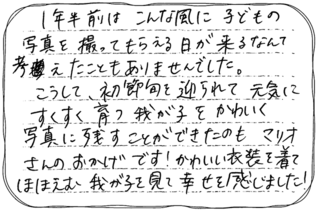 1年半前は こんな風に 子どもの
写真を 撮ってもらえる日が 来るなんて
考えたことも ありませんでした。
こうして、初節句を 迎られて 元気に
すくすく 育つ 我が子を かわいく
写真に 残すことが できたのも マリオ
さんの おかげです！かわいい衣装を 着て
ほほえむ 我が子を 見て 幸せを 感じました！